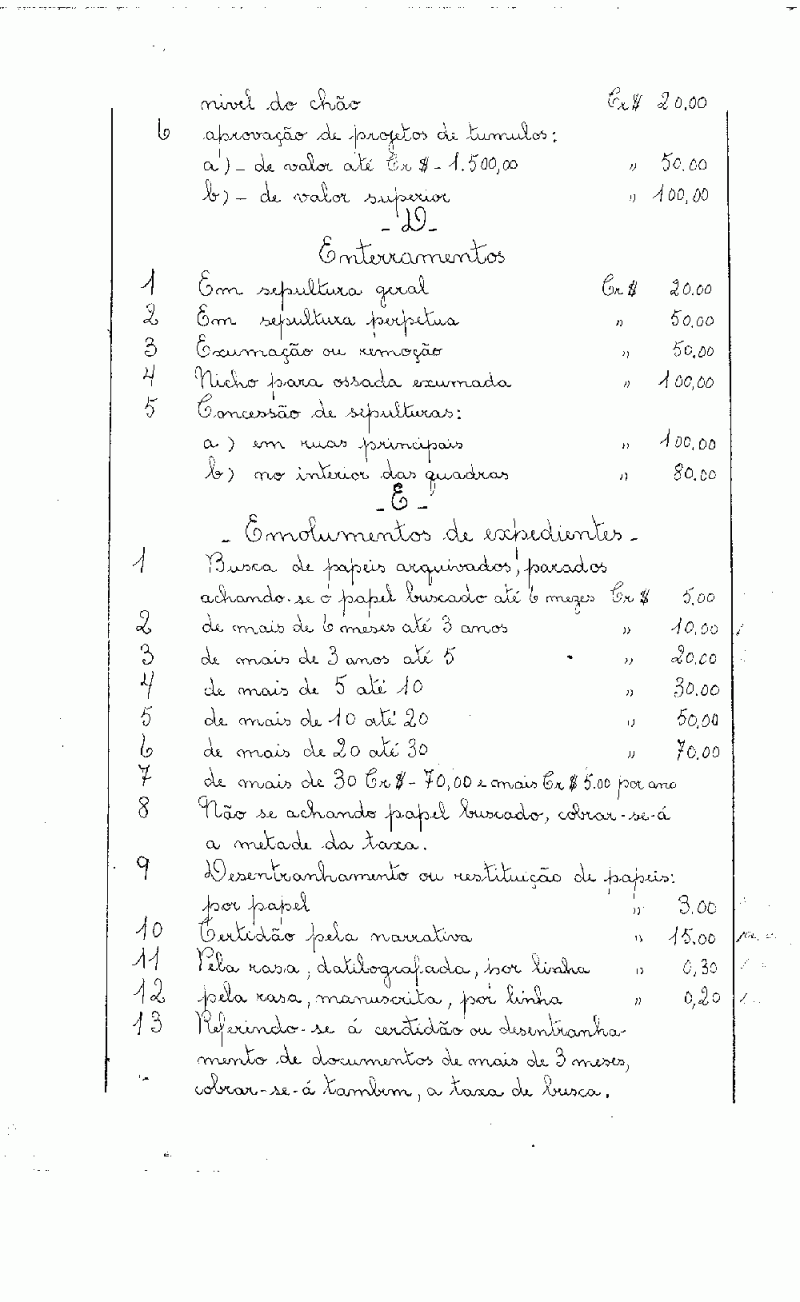 nivel do chão Cr$ 20,00
6 aprovação de projetos de tumulos:
a) - de valor até Cr$ - 1.500,00 " 50.00
b) - de valor superior " 100,00
- D -
Enterramentos
1 Em sepultura geral Cr$ 20.00
2 Em sepultura perpetua " 50,00
3 Exumação ou remoção " 50,00
4 Nicho para ossada exumada " 100,00
5 Concessão de sepulturas:
a) em ruas principais " 100,00
b) no interior das quadras " 80.00
- E -
- Emolumentos de expedientes -
1 Busca de papéis arquivados, parados
achando-se o papel buscado até 6 mezes Cr$ 5,00
2 de mais de 6 meses até 3 anos " 10,00
3 de mais de 3 anos até 5 " 20,00
4 de mais de 5 até 10 " 30.00
5 de mais de 10 até 20 " 50,00
6 de mais de 20 até 30 " 70.00
7 de mais de 30 Cr$ - 70,00 e mais Cr$ 5.00 por ano
8 Não se achando papel buscado, cobrar-se-á
a metade da taxa.
9 Desentranhamento ou restituição de papeis:
por papel " 3.00
10 Certidão pela narrativa " 15.00
11 Pela rasa, datilografada, por linha " 0,30
12 pela rasa, manuscrita, por linha " 0,20
13 Referindo-se á cerdidão ou desentranha-
mento de documentos de mais de 3 meses,
cobrar-se-á tambem, a taxa de busca.